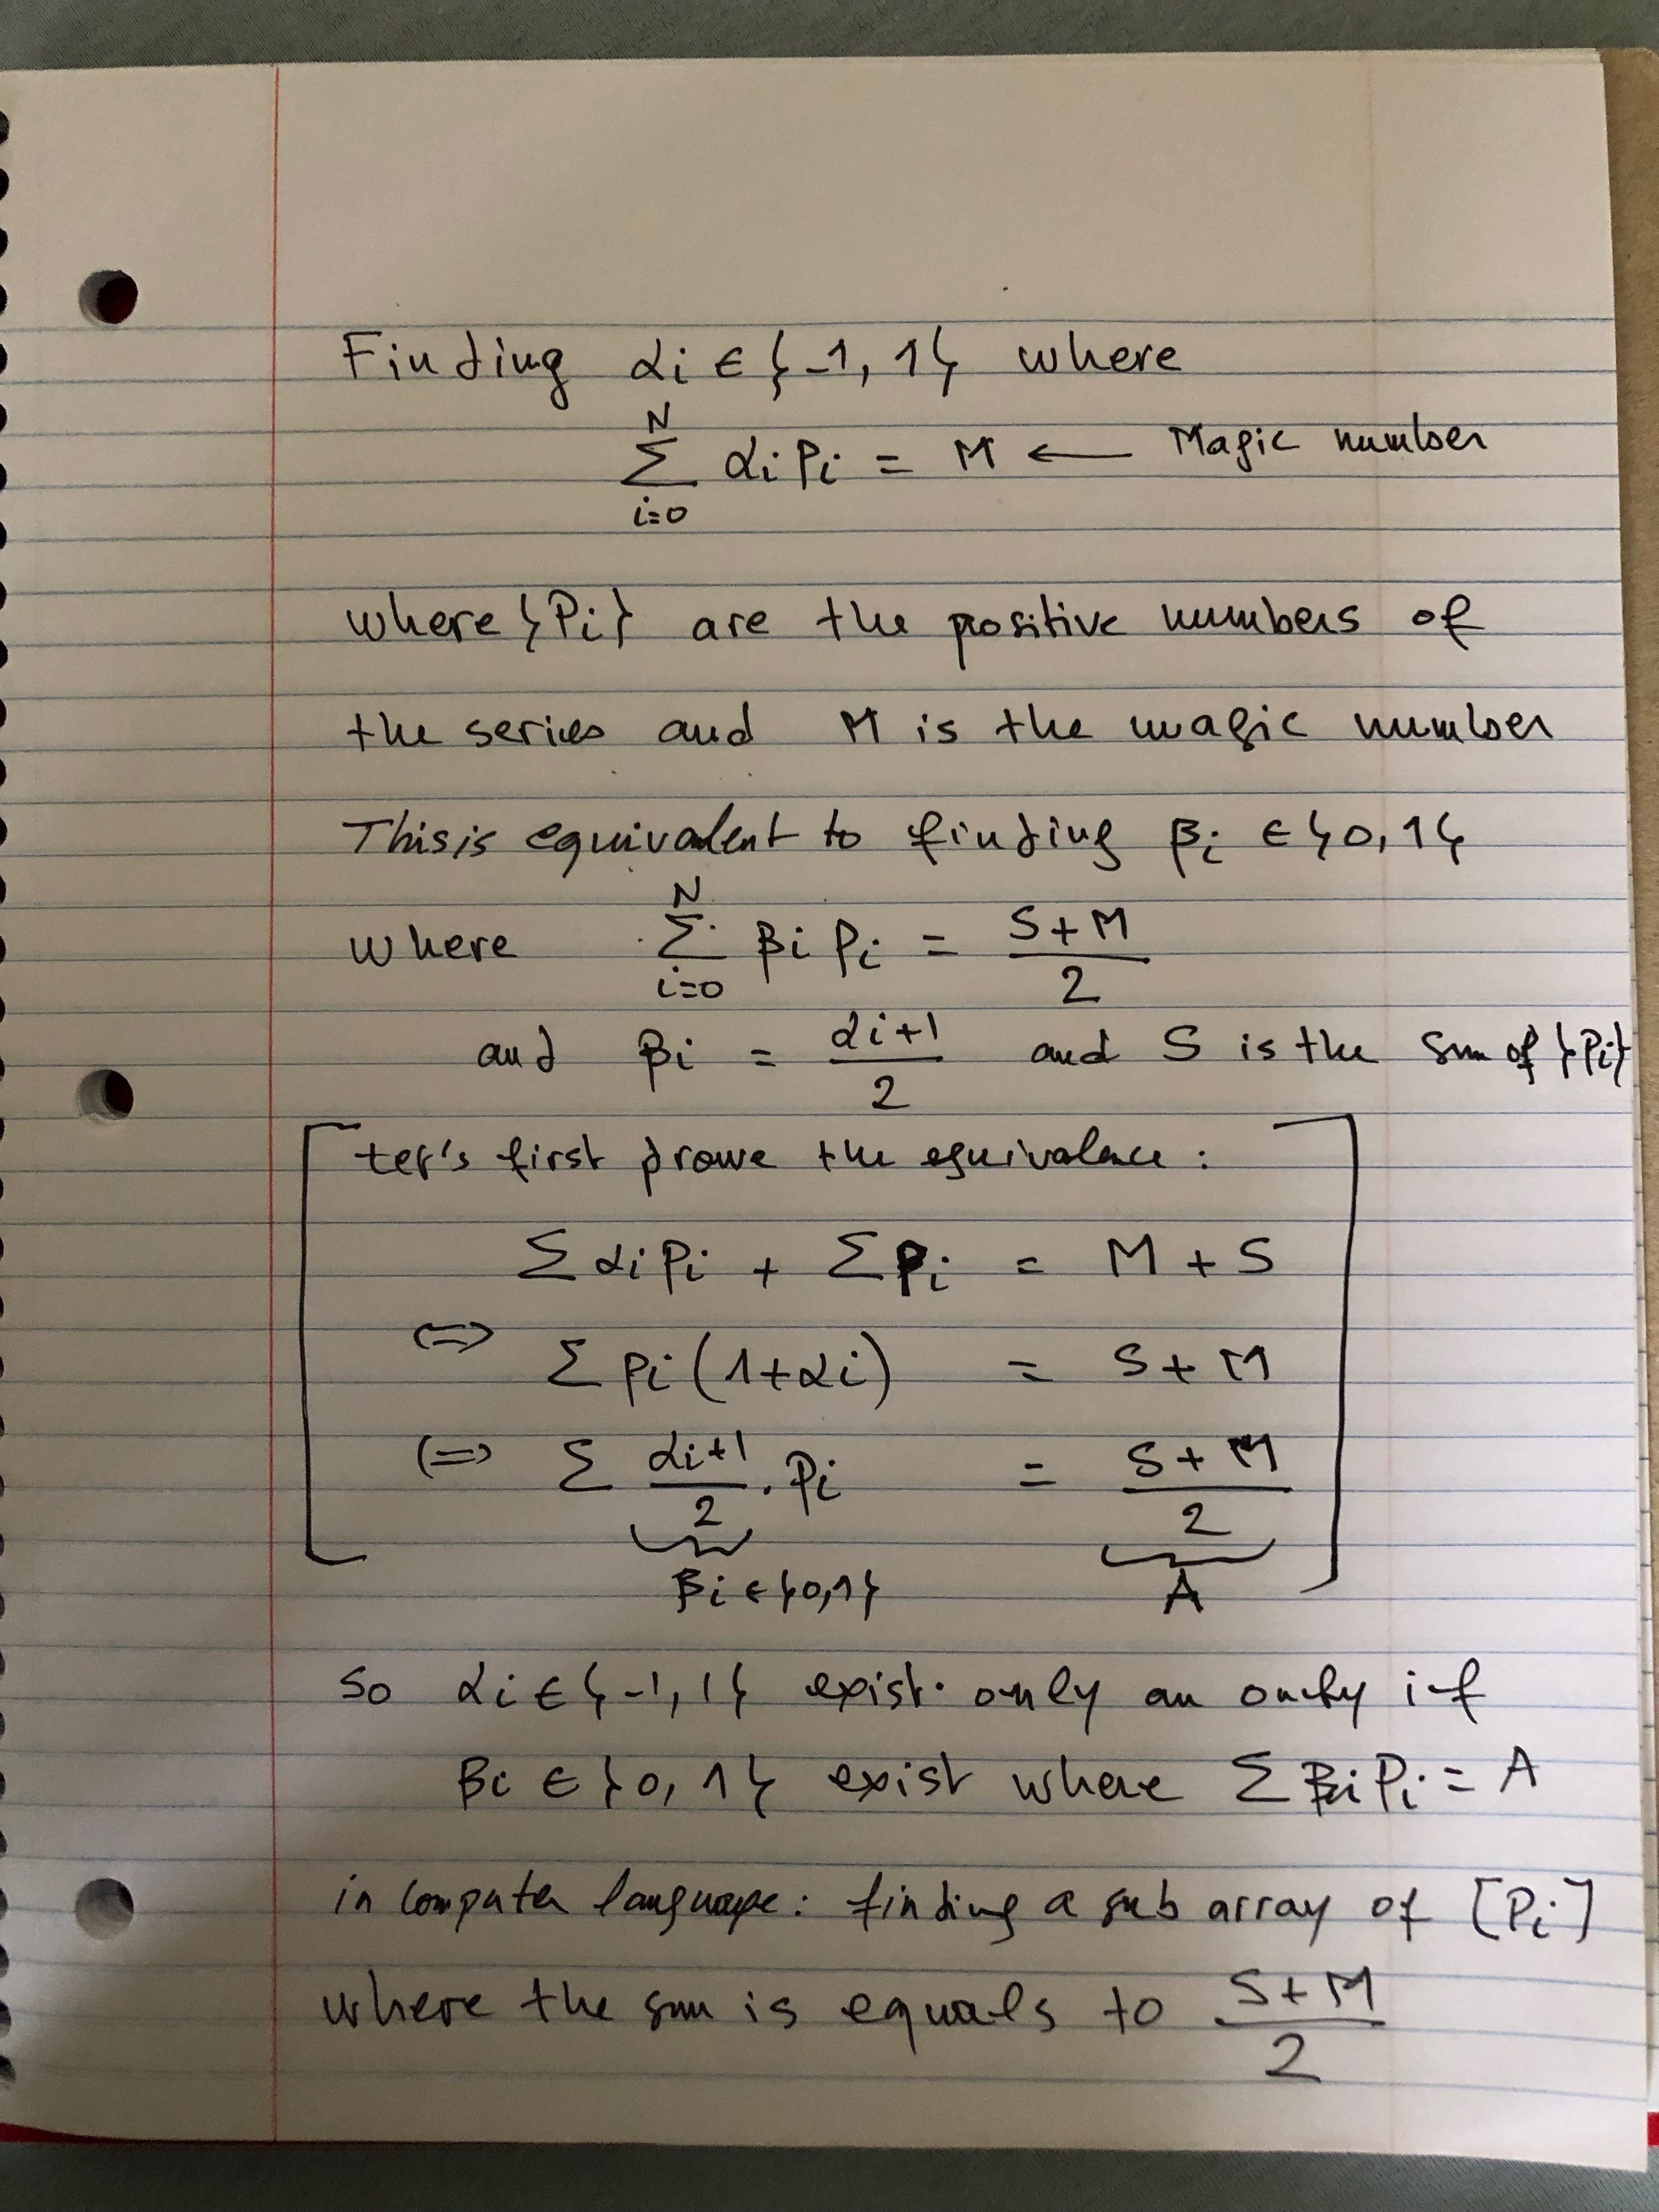 Finding αi ∈ {-1, 1} where
N
∑ αi Pi = M ← Magic number
i=0
where {Pi} are the positive numbers of
the series and M is the magic number
This is equivalent to finding βi ∈ {0, 1}
where N∑i=0 βi Pi = (S+M)/2
and βi = (αi+1)/2 and S is the sum of {Pi}
let's first prove the equivalence :
∑ αi Pi + ∑ Pi = M + S
⇔ ∑ Pi (1+αi) = S + M
⇔ ∑ (αi+1)/2 . Pi = (S+M)/2
βi ∈ {0,1} A
so αi ∈ {-1, 1} exist only an only if
βi ∈ {0, 1} exist where ∑ βi Pi = A
in computer language : finding a sub array of [Pi]
where the sum is equals to (S+M)/2